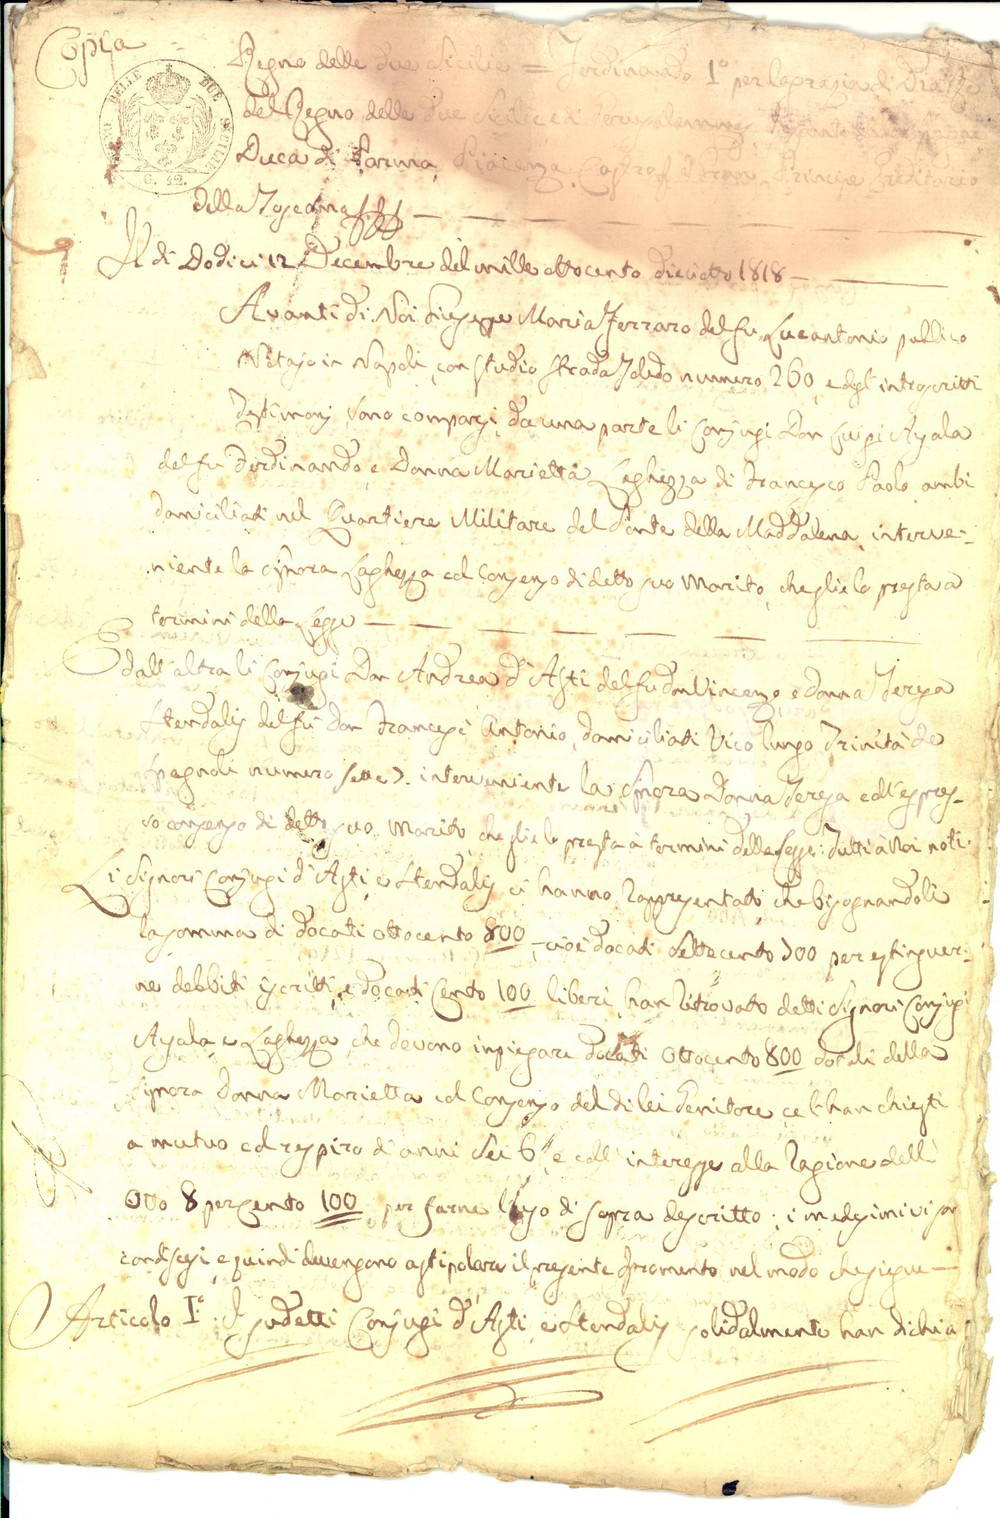 Copia =
REGNO DELLE DUE SICILIE
G. 12.
Regno delle due Sicilie = Ferdinando I° per la grazia di Dio Re
del Regno delle due Sicilie e di Gerusalemme, Infante
Duca di Parma, Piacenza, Castro, Principe Ereditario
della Toscana
Il di Dodici 12 Decembre del mille ottocento dieciotto 1818
Avanti di Noi Giuseppe Maria Ferraro del fu Lucantonio publico
Notajo in Napoli, con studio Strada Toledo numero 260, e degl'infrascritti
Testimonj sono comparsi, da una parte li Conjugi Don Luigi Ayala
del fu Ferdinando, e Donna Marietta Laghezza di Francesco Paolo, ambi
domiciliati nel Quartiere Militare del Ponte della Maddalena, interve-
niente la Signora Laghezza col consenso di detto suo Marito, che glie lo presta a
termini della Legge
E dall'altra li Conjugi Don Andrea d'Asti del fu don Vincenzo, e donna Teresa
Stendalis del fu don Francesc'Antonio, domiciliati Vico lungo Trinità de
Spagnoli numero sette 7. interveniente la Signora Donna Teresa coll'espres-
so consenso di detto suo Marito, che glie lo presta a termini della Legge: Tutti à Noi noti.
Li Signori Conjugi d'Asti, e Stendalis ci hanno rappresentato, che bisognandoli
la somma di docati ottocento 800, cioè docati settecento 700 per estinguer-
ne debbiti iscritti, e docati cento 100 liberi, han ritrovato detti Signori Conjugi
Ayala, e Laghezza, che devono inpiegare docati ottocento 800 dotali della
Signora Donna Marietta col consenso del di lei Genitore, ce l'han chiesti
a mutuo col respiro di anni sei 6, e coll'interesse alla ragione dell'
otto 8 per cento 100, per farne l'uso di sopra descritto; i medesimi vi son
condiscesi, e quindi devengono a stipolare il presente stromento nel modo che siegue
Articolo I°: I sudetti Conjugi d'Asti, e Stendalis solidalmente han dichia